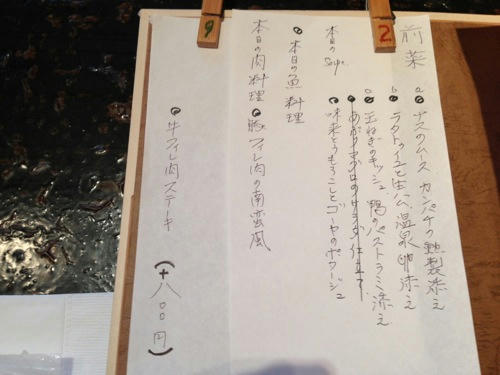 前菜
a ナスのムース カンパチの燻製添え
b ラタトゥイユと生ハム 温泉卵添え
c 玉ねぎのキッシュ、鴨のパストラミ添え
本日の Soupe.
味来とうもろこしとゴーヤのポタージュ
本日の魚料理
本日の肉料理
豚フィレ肉の南蛮風
牛フィレ肉ステーキ (+八〇〇円)
2
9